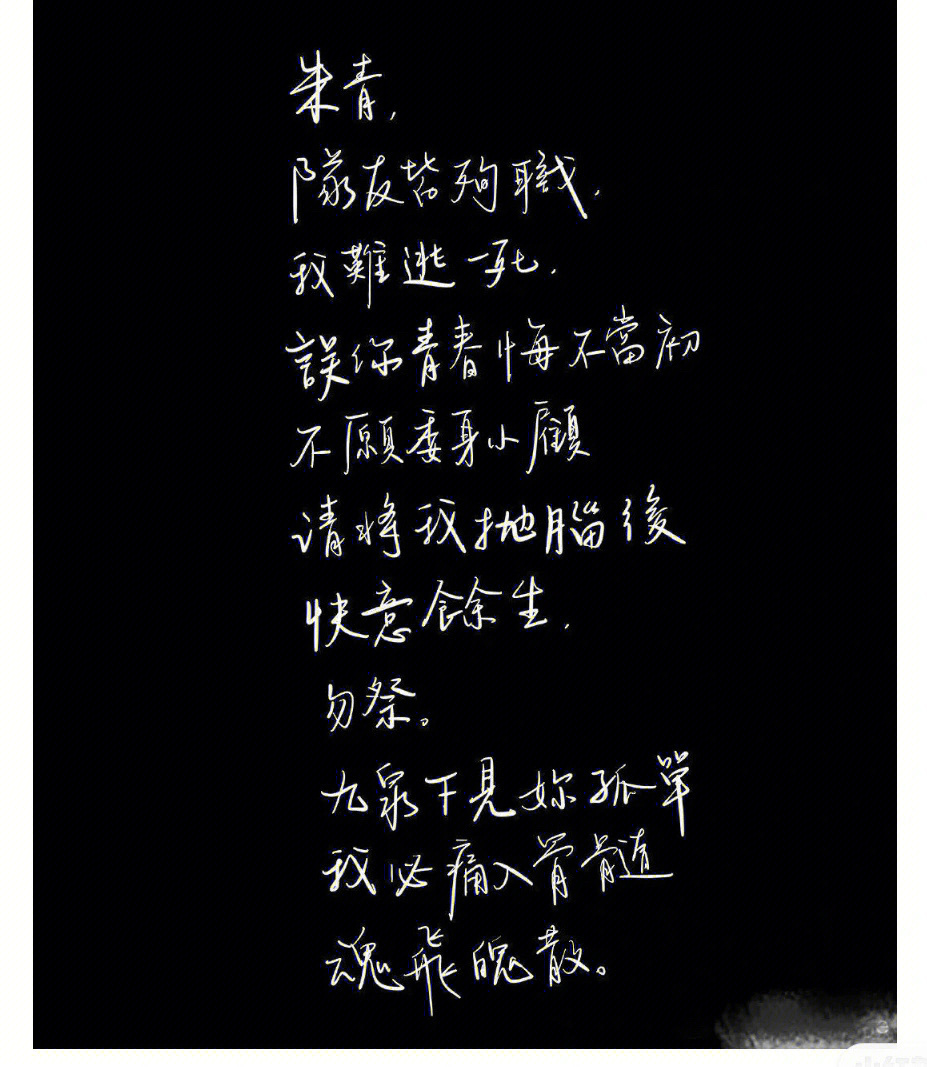 朱青，
隊友皆殉職．
我難逃一死．
誤你青春悔不當初
不願委身小顧
请將我抛腦後
快意餘生．
勿祭。
九泉下見妳孤單
我必痛入骨髓
魂飛魄散。